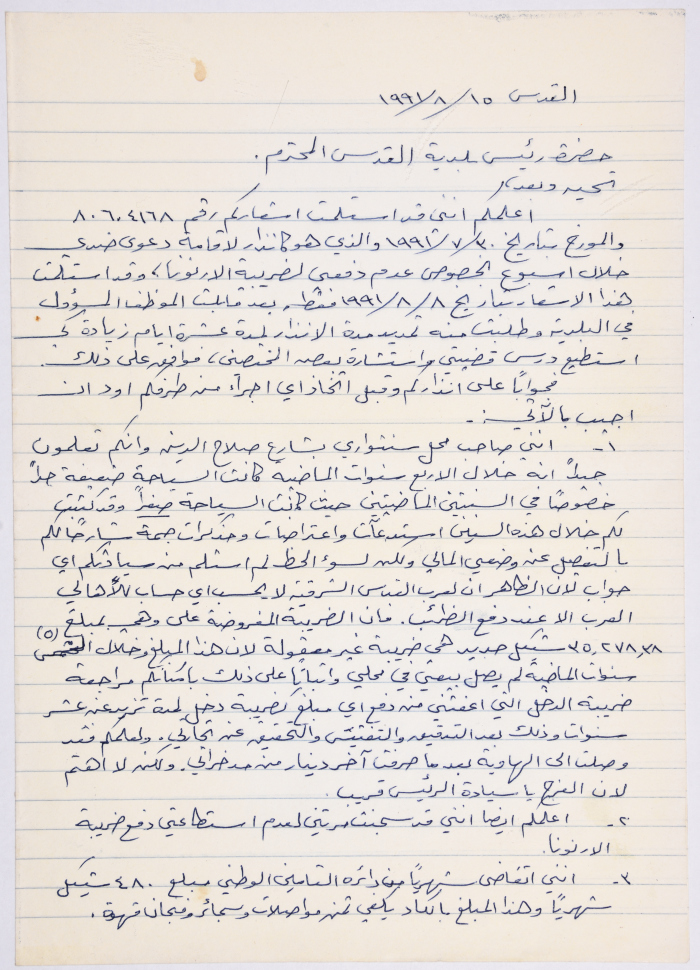 القدس ١٥/٨/١٩٩١
حضرة رئيس بلدية القدس المحترم.
تحية وبعد،
اعلمكم انني قد استلمت اشعاركم رقم ٨٠٦٠٤١٦٨
والمورخ بتاريخ ٣٠/٧/١٩٩١ والذي هو كانذار لاقامة دعوى ضدي
خلال اسبوع بخصوص عدم دفعي لضريبة الارنونا، وقد استلمت
هذا الاشعار بتاريخ ٨/٨/١٩٩١ فقط. بعد قابلت الموظف المسؤول
في البلدية وطلبت منه تمديد مدة الانذار لمدة عشرة ايام زيادة كي
استطيع درس قضيتي واستشارة بعض المختصين، فوافق على ذلك.
فجواباً على انذاركم وقبل اتخاذ اي اجراء من طرفكم اود ان
اجيب بالآتي:-
١- انني صاحب محل سنتواري بشارع صلاح الدين وانكم تعلمون
جيداً انه خلال الاربع سنوات الماضية كانت السياحة ضعيفة جداً
خصوصاً في السنتين الماضيتين حيث كانت السياحة صفراً وقد كتبت
لكم خلال هذه السنين استدعاآت واعتراضات ومذكرات جمة شارحاً لكم
بالتفصل عن وضعي المالي ولكن لسوء الحظ لم استلم من سيادتكم اي
جواب لان الظاهر ان لعرب القدس الشرقية لا يحسب اي حساب للأهالي
العرب الا عند دفع الضرائب. فان الضريبة المفروضة علي وهي بمبلغ
٣٥,٢٧٨,٣٨ شيكل جديد هي ضريبة غير معقولة لان هذا المبلغ وخلال الخمس (٥)
سنوات الماضية لم يصل بيعي في محلي واثباتاً على ذلك بامكانكم مراجعة
ضريبة الدخل التي اعفتني من دفع اي مبلغ كضريبة دخل لمدة تزيد عن عشر
سنوات وذلك بعد التدقيق والتفتيش والتحقيق عن تجارتي. ولعلمكم فقد
وصلت الى الهاوية بعد ما صرفت آخر دينار من مدخراتي. ولكن لا اهتم
لان الفرج يا سيادة الرئيس قريب.
٢- اعلمكم ايضا انني قد سجنت مرتين لعدم استطاعتي دفع ضريبة
الارنونا.
٣- انني اتقاضى شهرياً من دائرة التامين الوطني مبلغ ٤٨٠ شيكل
شهرياً وهذا المبلغ بالكاد يكفي ثمن مواصلات وسجائر وفنجان قهوة.